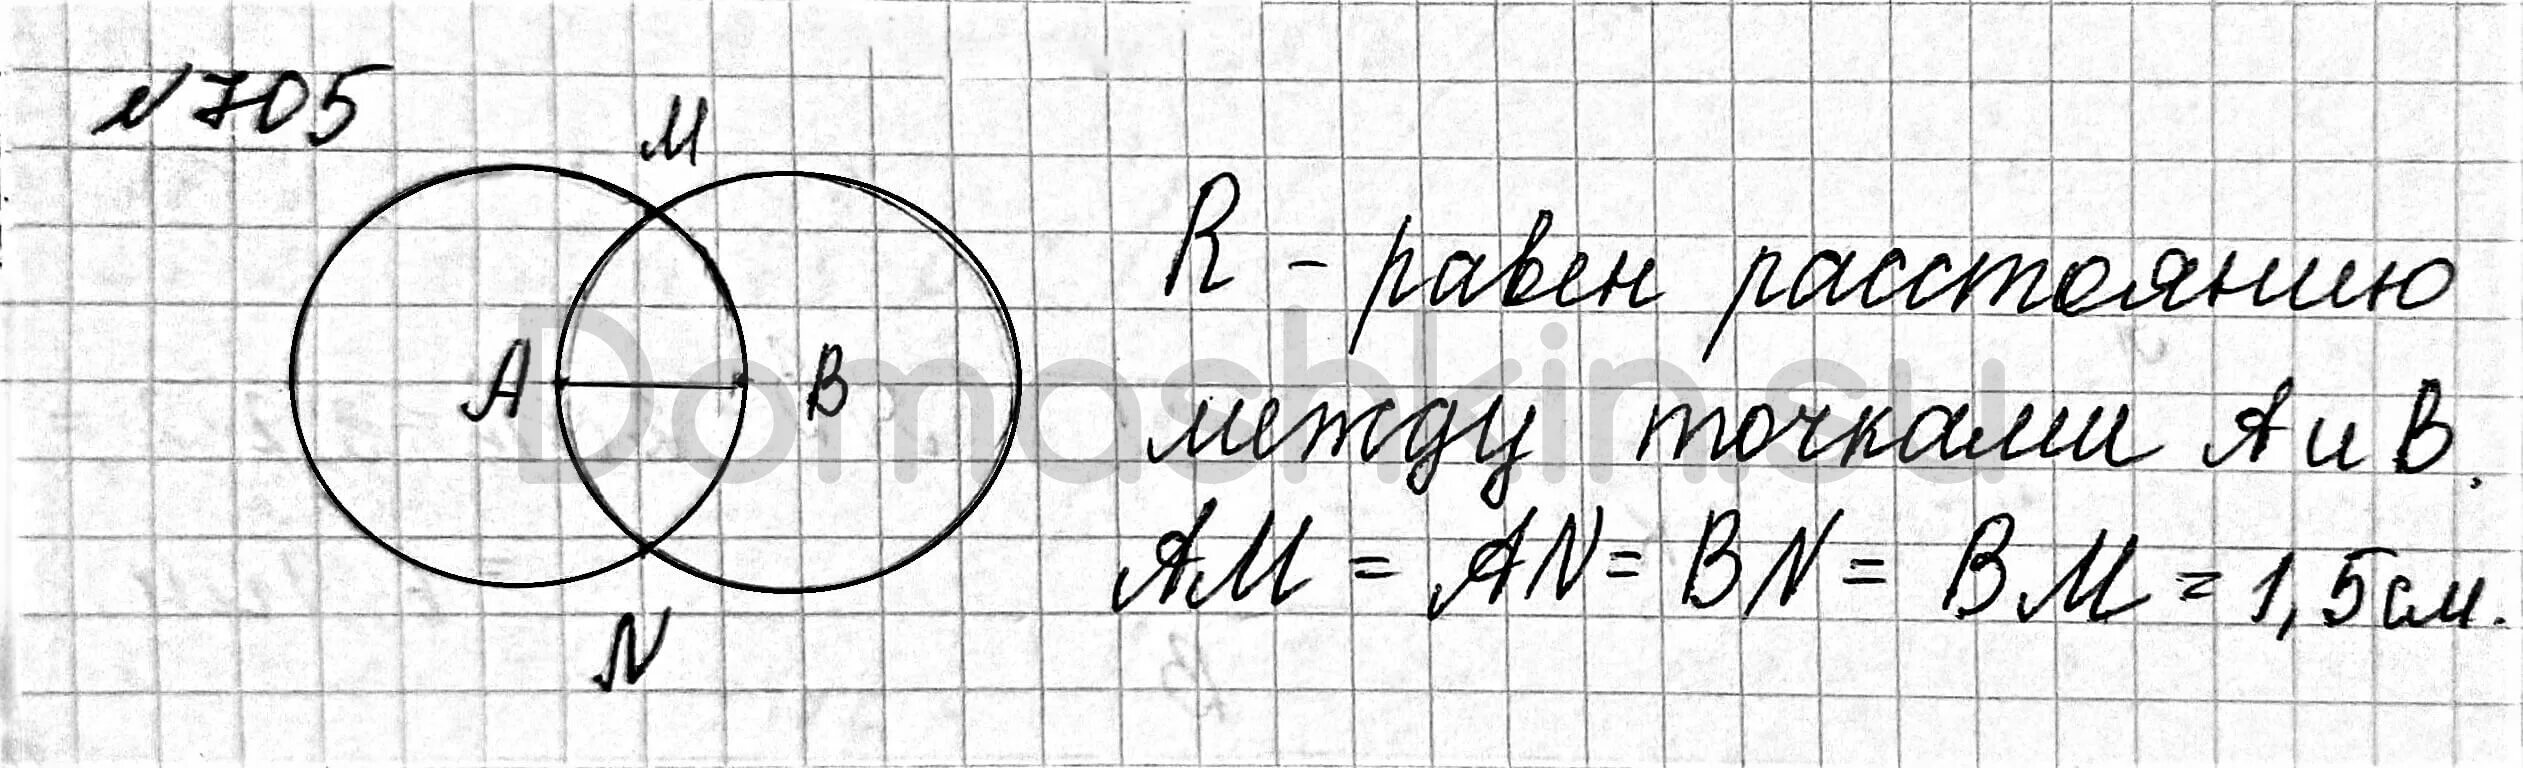 №705
M
A B
N
R - равен расстоянию
между точками А и В.
AM = AN = BN = BM = 1,5см.
Domashkin.su